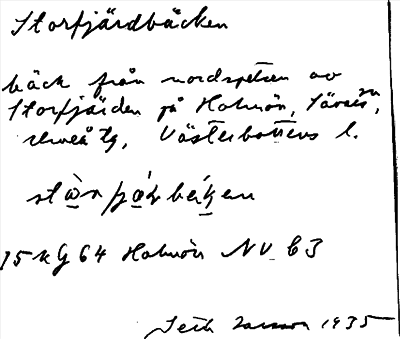 Storfjärdbäcken
bäck från nordspetsen av
Storfjärden på Holmön, Sävars sn,
Umeå tg, Västerbottens l.
15 KG 64 Holmön NV b3
Seth Larsson 1935